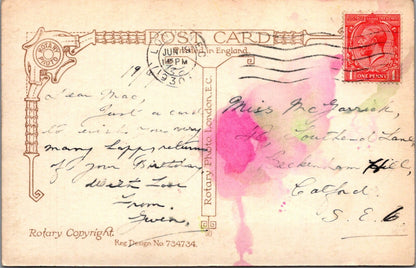 POST CARD
Printed in England.
ROTARY PHOTO
JUN
PM
1930
ONE PENNY
19
Dear Mac,
Just a card
to wish you very
many happy returns
of your Birthday
With Love
From.
Gwen.
Miss McGarrick,
Southend Lane,
Beckenham Hill,
Catford.
S.E.6
Rotary Photo, London, E.C.
Rotary Copyright.
Reg Design No 734734.